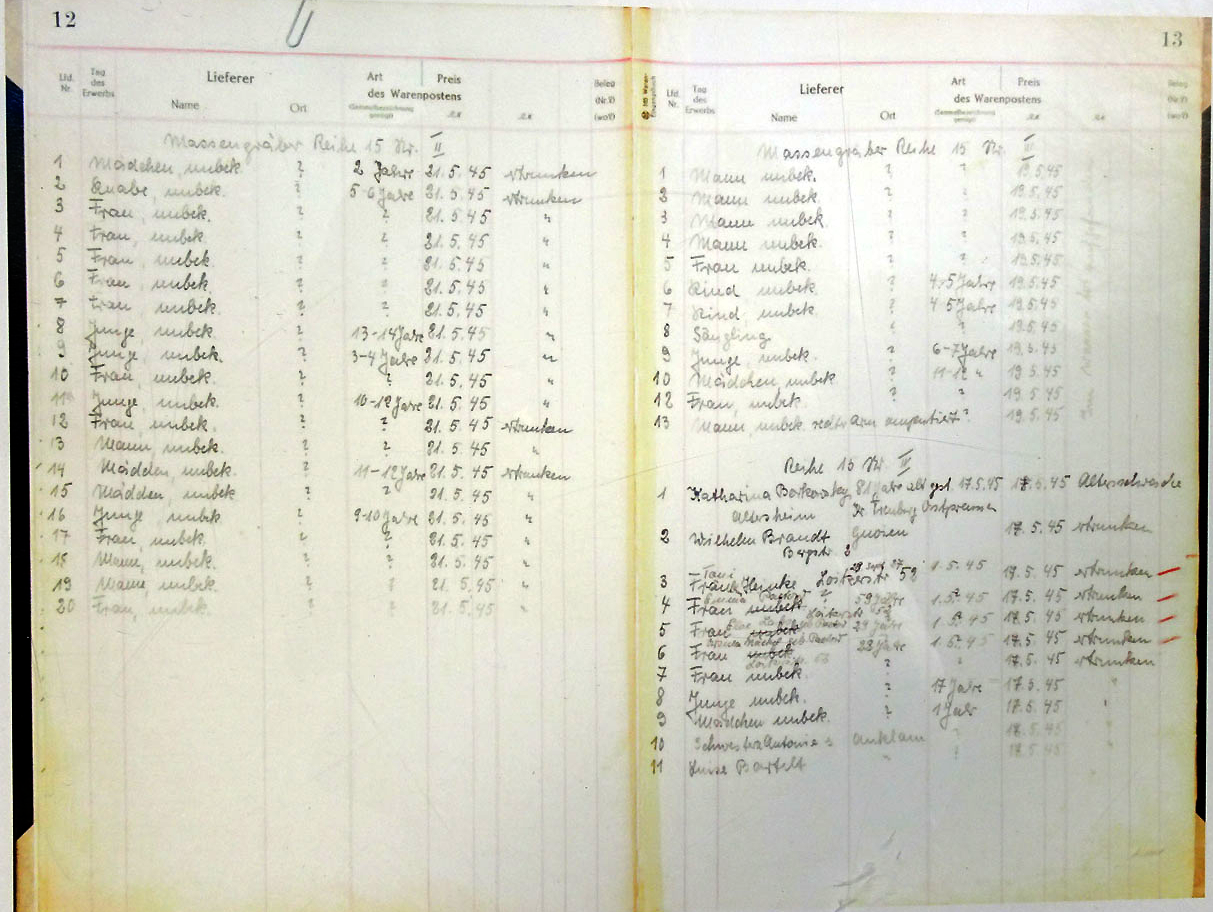 12
Lfd. Nr. Tag des Erwerbs Lieferer Name Ort Art des Warenpostens Preis Beleg
Massengräber Reihe 15 Nr. II
1 Mädchen, unbek. ? 2 Jahre 21.5.45 ertrunken
2 Knabe, unbek. ? 5-6 Jahre 21.5.45 ertrunken
3 Frau, unbek. ? ? 21.5.45 "
4 Frau, unbek. ? ? 21.5.45 "
5 Frau, unbek. ? ? 21.5.45 "
6 Frau, unbek. ? ? 21.5.45 "
7 Frau, unbek. ? ? 21.5.45 "
8 Junge, unbek. ? 13-14 Jahre 21.5.45 "
9 Junge, unbek. ? 3-4 Jahre 21.5.45 "
10 Frau, unbek. ? ? 21.5.45 "
11 Junge, unbek. ? 10-12 Jahre 21.5.45 "
12 Frau, unbek. ? ? 21.5.45 ertrunken
13 Mann, unbek. ? ? 21.5.45 "
14 Mädchen, unbek. ? 11-12 Jahre 21.5.45 ertrunken
15 Mädchen, unbek. ? ? 21.5.45 "
16 Junge, unbek. ? 9-10 Jahre 21.5.45 "
17 Frau, unbek. ? ? 21.5.45 "
18 Mann, unbek. ? ? 21.5.45 "
19 Mann, unbek. ? ? 21.5.45 "
20 Frau, unbek. ? ? 21.5.45 "
13
Lfd. Nr. Tag des Erwerbs Lieferer Name Ort Art des Warenpostens Preis Beleg
Massengräber Reihe 15 Nr. III
1 Mann unbek. ? ? 19.5.45
2 Mann unbek. ? ? 19.5.45
3 Mann unbek. ? ? 19.5.45
4 Mann unbek. ? ? 19.5.45
5 Frau unbek. ? ? 19.5.45
6 Kind unbek. ? 4-5 Jahre 19.5.45
7 Kind unbek. ? 4-5 Jahre 19.5.45
8 Säugling ? ? 19.5.45
9 Junge, unbek. ? 6-7 Jahre 19.5.45
10 Mädchen, unbek. ? 11-12 " 19.5.45
12 Frau, unbek. ? ? 19.5.45
13 Mann, unbek. rechter Arm amputiert ? 19.5.45
Reihe 15 Nr. IV
1 Katharina 81 Jahre alt gest. 17.5.45 17.5.45 Altersschwäche
Altersheim Kr. Treuburg Ostpreussen
2 Wilhelm Brandt Gnoien 17.5.45 ertrunken
Bergstr 3
3 Frau Heinke 1.5.45 17.5.45 ertrunken
4 Frau unbek. 59 Jahre 1.5.45 17.5.45 ertrunken
5 Frau unbek. 29 Jahre 1.5.45 17.5.45 ertrunken
6 Frau unbek. 28 Jahre 1.5.45 17.5.45 ertrunken
7 Frau unbek. ? 17.5.45 ertrunken
8 Junge unbek. ? 17 Jahre 17.5.45 "
9 Mädchen unbek. ? 1 Jahr 17.5.45 "
10 Schwester Antonie Anklam ? 17.5.45 "
11 Luise Bartelt " ? 17.5.45